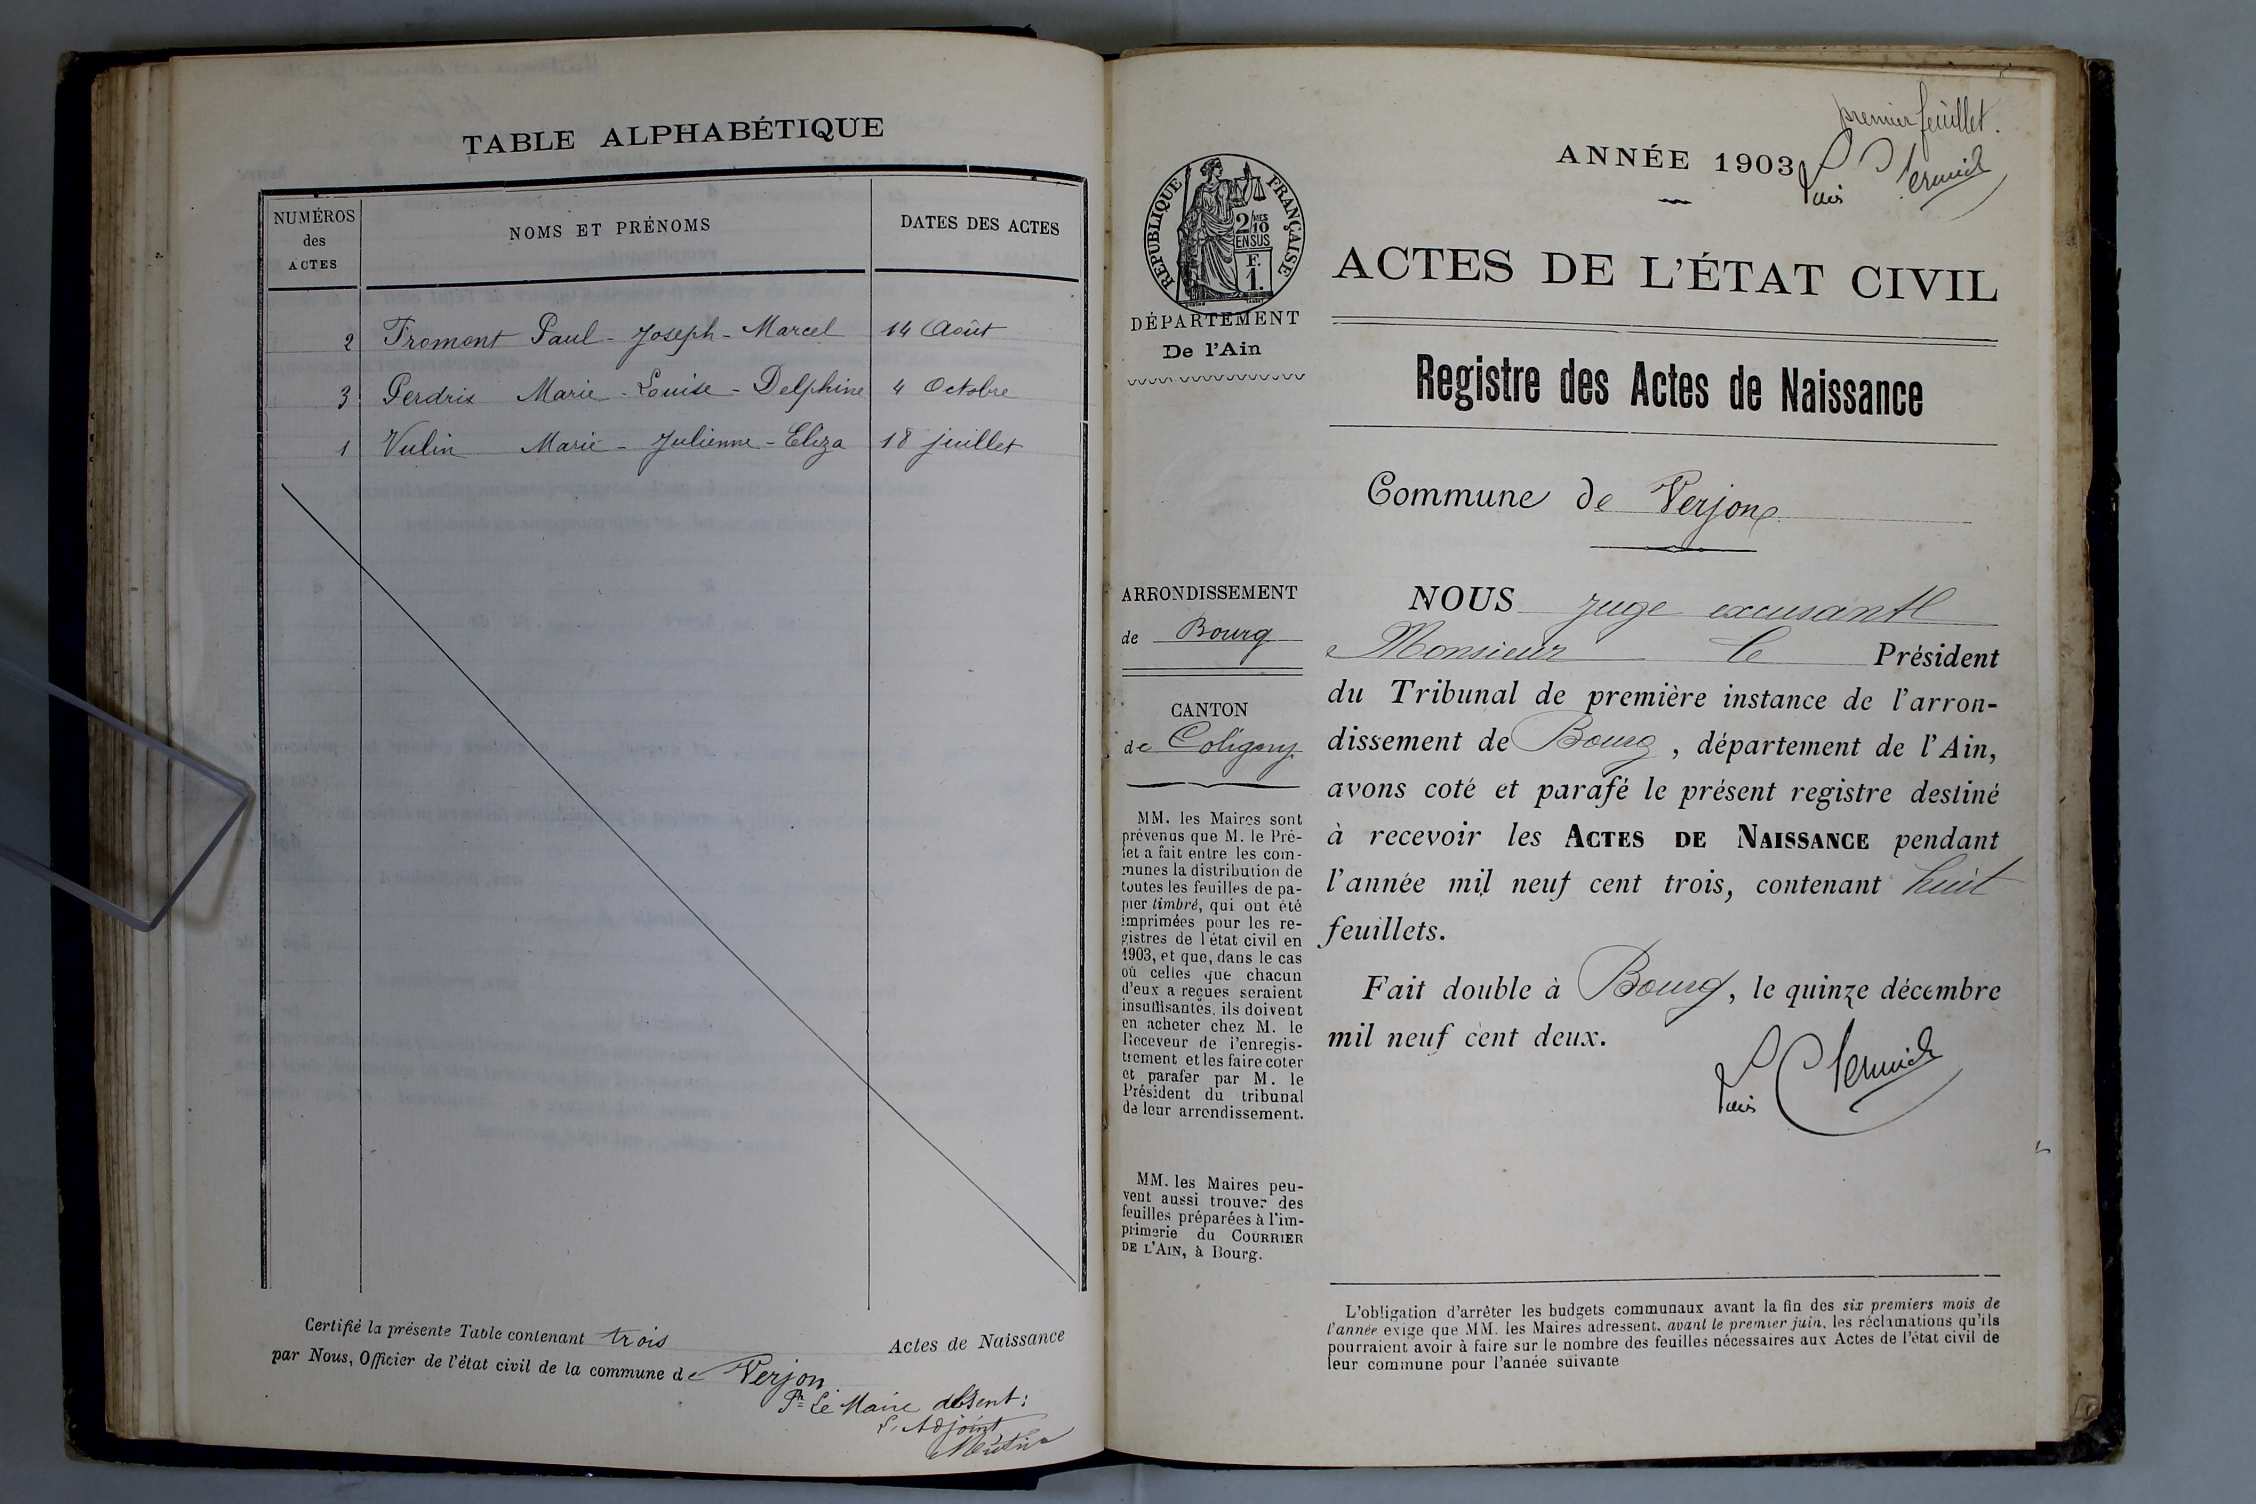 TABLE ALPHABÉTIQUE
NUMÉROS
des
ACTES
NOMS ET PRÉNOMS
DATES DES ACTES
2 Fromont Paul - Joseph - Marcel 14 Août
3 Perdrix Marie - Louise - Delphine 4 Octobre
1 Vulin Marie - Julienne - Eliza 18 juillet
Certifié la présente Table contenant trois Actes de Naissance
par Nous, Officier de l'état civil de la commune de Verjon
Pr Le Maire absent:
L'Adjoint
premier feuillet.
ANNÉE 1903
RÉPUBLIQUE FRANÇAISE
2/10
EN SUS
F.
1.
ACTES DE L'ÉTAT CIVIL
DÉPARTEMENT
De l'Ain
Registre des Actes de Naissance
Commune de Verjon
ARRONDISSEMENT
de Bourg
CANTON
de Coligny
MM. les Maires sont
prévenus que M. le Pré-
fet a fait entre les com-
munes la distribution de
toutes les feuilles de pa-
pier timbré, qui ont été
imprimées pour les re-
gistres de l'état civil en
1903, et que, dans le cas
où celles que chacun
d'eux a reçues seraient
insuffisantes, ils doivent
en acheter chez M. le
Receveur de l'enregis-
trement et les faire coter
et parafer par M. le
Président du tribunal
de leur arrondissement.
MM. les Maires peu-
vent aussi trouver des
feuilles préparées à l'im-
primerie du COURRIER
DE L'AIN, à Bourg.
NOUS juge
Monsieur le Président
du Tribunal de première instance de l'arron-
dissement de Bourg, département de l'Ain,
avons coté et parafé le présent registre destiné
à recevoir les ACTES DE NAISSANCE pendant
l'année mil neuf cent trois, contenant huit
feuillets.
Fait double à Bourg, le quinze décembre
mil neuf cent deux.
L'obligation d'arrêter les budgets communaux avant la fin des six premiers mois de
l'année exige que MM. les Maires adressent, avant le premier juin, les réclamations qu'ils
pourraient avoir à faire sur le nombre des feuilles nécessaires aux Actes de l'état civil de
leur commune pour l'année suivante